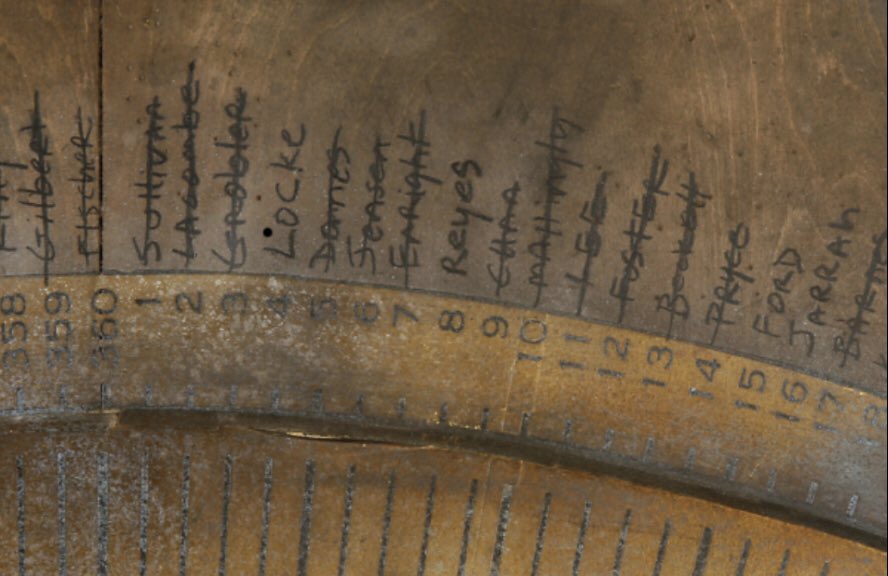 Gilbert
Fischer
Sullivan
Lacombe
Grobbler
LOCKE
Dames
Jensen
ENRight
Reyes
CHAA
MAttingly
LEE
FOSTER
Beckett
PRyce
FORD
JARRAH
358
359
360
1
2
3
4
5
6
7
8
9
10
11
12
13
14
15
16
17